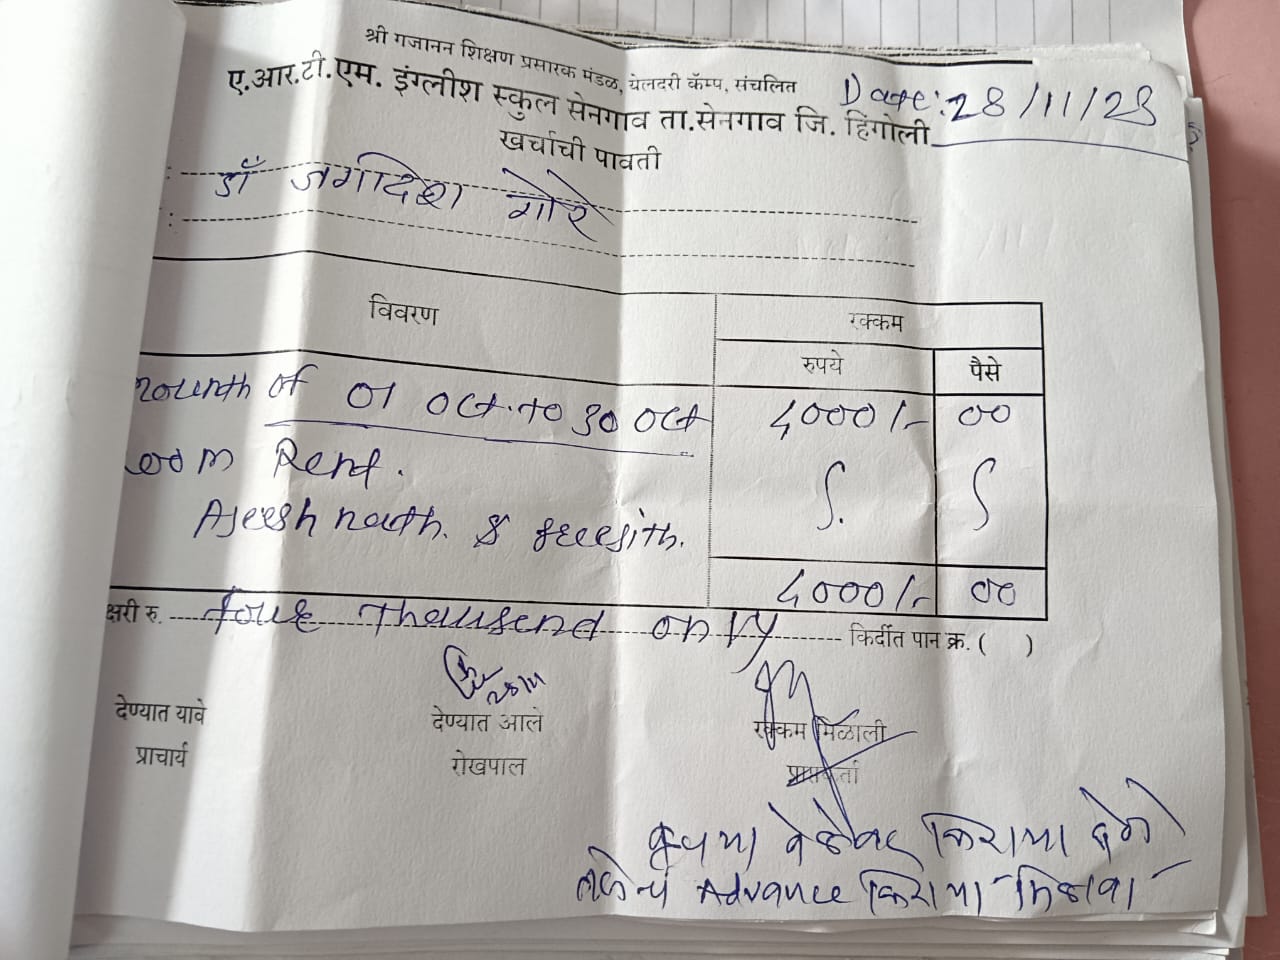 श्री गजानन शिक्षण प्रसारक मंडळ, येलदरी कॅम्प, संचलित
ए.आर.टी.एम. इंग्लीश स्कुल सेनगाव ता.सेनगाव जि. हिंगोली
Date: 28/11/23
खर्चाची पावती
: डॉ जगदिश गोरे
:
विवरण रक्कम
रुपये पैसे
month of 01 Oct. to 30 Oct 4000/- 00
oom Rent.
Ajeesh nath. & sreejith.
4000/- 00
क्षरी रु. four thousend only किर्दीत पान क्र. ( )
28/11
देण्यात यावे देण्यात आले रक्कम मिळाली
प्राचार्य रोखपाल प्राप्तकर्ता
कृपया वेळेवर किराया देणे
Advance किराया मिळावा